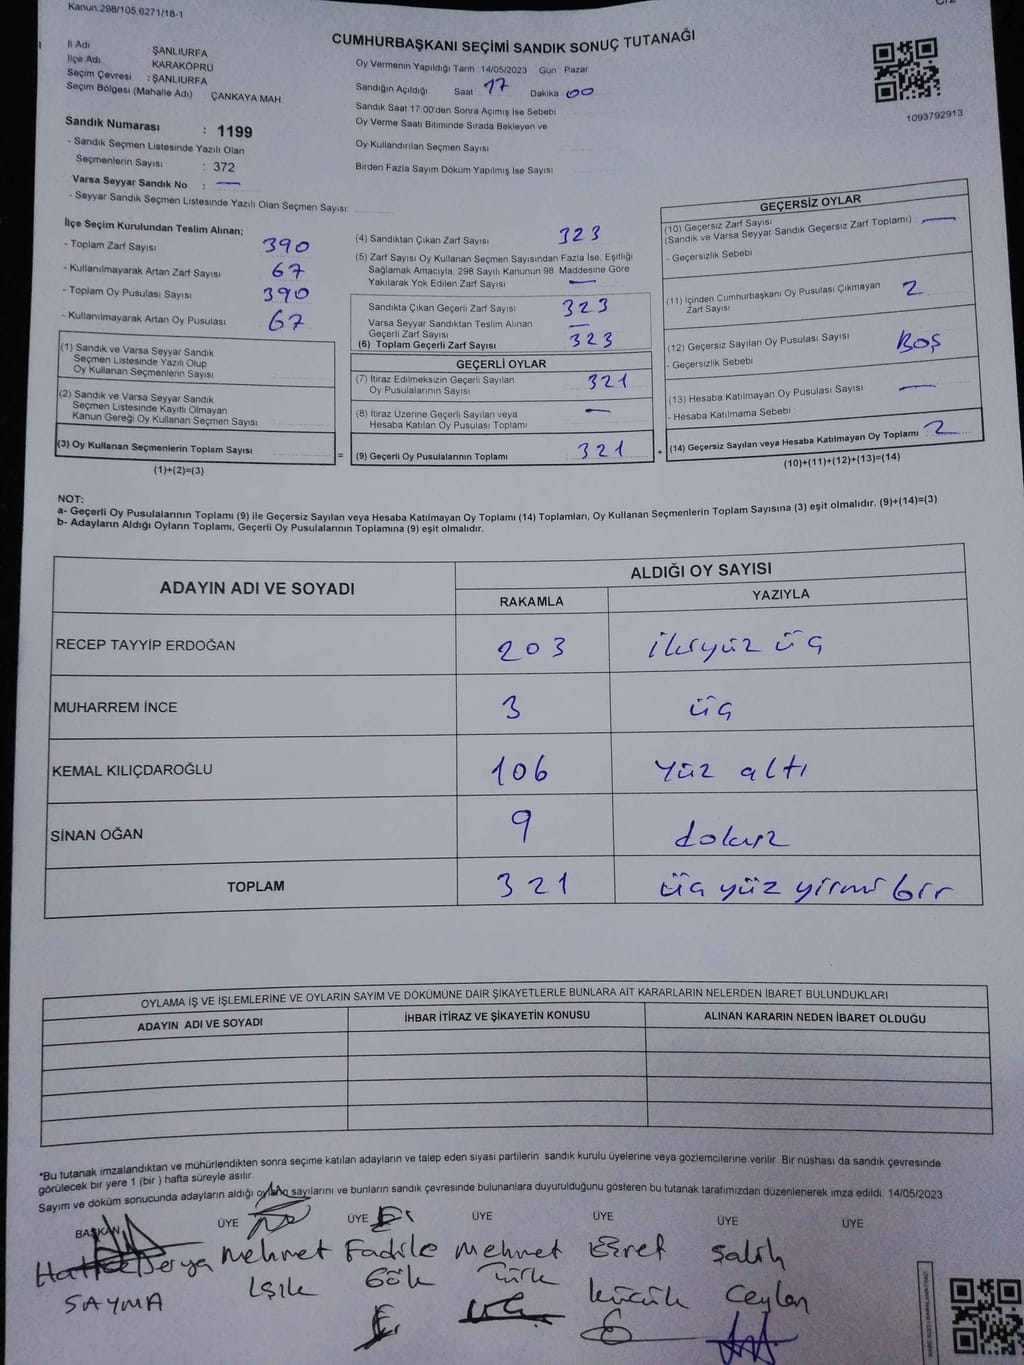 Kanun.298/105,6271/18-1
CUMHURBAŞKANI SEÇİMİ SANDIK SONUÇ TUTANAĞI
İl Adı ŞANLIURFA
İlçe Adı KARAKÖPRÜ
Seçim Çevresi :ŞANLIURFA
Seçim Bölgesi (Mahalle Adı) ÇANKAYA MAH
Sandık Numarası : 1199
- Sandık Seçmen Listesinde Yazılı Olan
Seçmenlerin Sayısı : 372
Varsa Seyyar Sandık No : —
- Seyyar Sandık Seçmen Listesinde Yazılı Olan Seçmen Sayısı:
Oy Vermenin Yapıldığı Tarih :14/05/2023 Gün Pazar
Sandığın Açıldığı Saat 17 Dakika 00
Sandık Saat 17 00'den Sonra Açımış İse Sebebi
Oy Verme Saati Bitiminde Sırada Bekleyen ve
Oy Kullandırılan Seçmen Sayısı
Birden Fazla Sayım Döküm Yapılmış İse Sayısı
1093792913
İlçe Seçim Kurulundan Teslim Alınan;
- Toplam Zarf Sayısı 390
- Kullanılmayarak Artan Zarf Sayısı 67
- Toplam Oy Pusulası Sayısı 390
- Kullanılmayarak Artan Oy Pusulası 67
(1) Sandık ve Varsa Seyyar Sandık
Seçmen Listesinde Yazılı Olup
Oy Kullanan Seçmenlerin Sayısı
(2) Sandık ve Varsa Seyyar Sandık
Seçmen Listesinde Kayıtlı Olmayan
Kanun Gereği Oy Kullanan Seçmen Sayısı
(3) Oy Kullanan Seçmenlerin Toplam Sayısı
(1)+(2)=(3)
(4) Sandıktan Çıkan Zarf Sayısı 323
(5) Zarf Sayısı Oy Kullanan Seçmen Sayısından Fazla İse, Eşitliği
Sağlamak Amacıyla, 298 Sayılı Kanunun 98. Maddesine Göre
Yakılarak Yok Edilen Zarf Sayısı —
Sandıkta Çıkan Geçerli Zarf Sayısı 323
Varsa Seyyar Sandıktan Teslim Alınan
Geçerli Zarf Sayısı —
(6) Toplam Geçerli Zarf Sayısı 323
GEÇERLİ OYLAR
(7) İtiraz Edilmeksizin Geçerli Sayılan
Oy Pusulalarının Sayısı 321
(8) İtiraz Üzerine Geçerli Sayılan veya
Hesaba Katılan Oy Pusulası Toplamı —
= (9) Geçerli Oy Pusulalarının Toplamı 321 +
GEÇERSİZ OYLAR
(10) Geçersiz Zarf Sayısı
(Sandık ve Varsa Seyyar Sandık Geçersiz Zarf Toplamı) : —
- Geçersizlik Sebebi
(11) İçinden Cumhurbaşkanı Oy Pusulası Çıkmayan
Zarf Sayısı 2
(12) Geçersiz Sayılan Oy Pusulası Sayısı
BOŞ
- Geçersizlik Sebebi
(13) Hesaba Katılmayan Oy Pusulası Sayısı —
- Hesaba Katılmama Sebebi :
(14) Geçersiz Sayılan veya Hesaba Katılmayan Oy Toplamı 2
(10)+(11)+(12)+(13)=(14)
NOT:
a- Geçerli Oy Pusulalarının Toplamı (9) ile Geçersiz Sayılan veya Hesaba Katılmayan Oy Toplamı (14) Toplamları, Oy Kullanan Seçmenlerin Toplam Sayısına (3) eşit olmalıdır. (9)+(14)=(3)
b- Adayların Aldığı Oyların Toplamı, Geçerli Oy Pusulalarının Toplamına (9) eşit olmalıdır.
ADAYIN ADI VE SOYADI ALDIĞI OY SAYISI
RAKAMLA YAZIYLA
RECEP TAYYİP ERDOĞAN 203 ikiyüz üç
MUHARREM İNCE 3 üç
KEMAL KILIÇDAROĞLU 106 yüz altı
SİNAN OĞAN 9 dokuz
TOPLAM 321 üç yüz yirmi bir
OYLAMA İŞ VE İŞLEMLERİNE VE OYLARIN SAYIM VE DÖKÜMÜNE DAİR ŞİKAYETLERLE BUNLARA AİT KARARLARIN NELERDEN İBARET BULUNDUKLARI
ADAYIN ADI VE SOYADI İHBAR İTİRAZ VE ŞİKAYETİN KONUSU ALINAN KARARIN NEDEN İBARET OLDUĞU
*Bu tutanak imzalandıktan ve mühürlendikten sonra seçime katılan adayların ve talep eden siyasi partilerin sandık kurulu üyelerine veya gözlemcilerine verilir. Bir nüshası da sandık çevresinde
görülecek bir yere 1 (bir ) hafta süreyle asılır.
Sayım ve döküm sonucunda adayların aldığı oyların sayılarını ve bunların sandık çevresinde bulunanlara duyurulduğunu gösteren bu tutanak tarafımızdan düzenlenerek imza edildi 14/05/2023
BAŞKAN ÜYE ÜYE ÜYE ÜYE ÜYE ÜYE
Derya Mehmet Fadile Mehmet Eşref Salih
SAYMA Işık Gök Türk küçük Ceylan